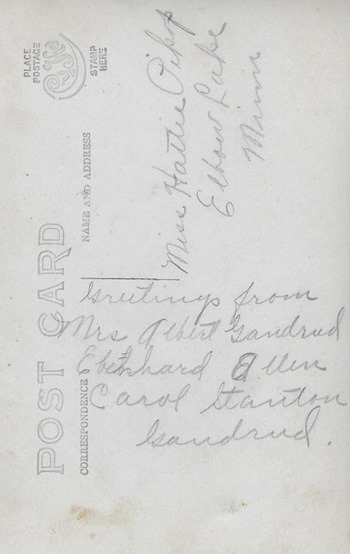 PLACE
POSTAGE
STAMP
HERE
POST CARD
NAME AND ADDRESS
CORRESPONDENCE
Miss Hattie
Elbow Lake
Minn
Greetings from
Mrs Albert Gandrud
Eberhard Allen
Carol Stanton
Gandrud.